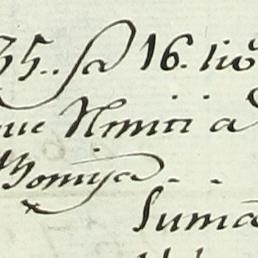 35.. sa 16. lio
que Nimiti a
Bomiya - -
Suma